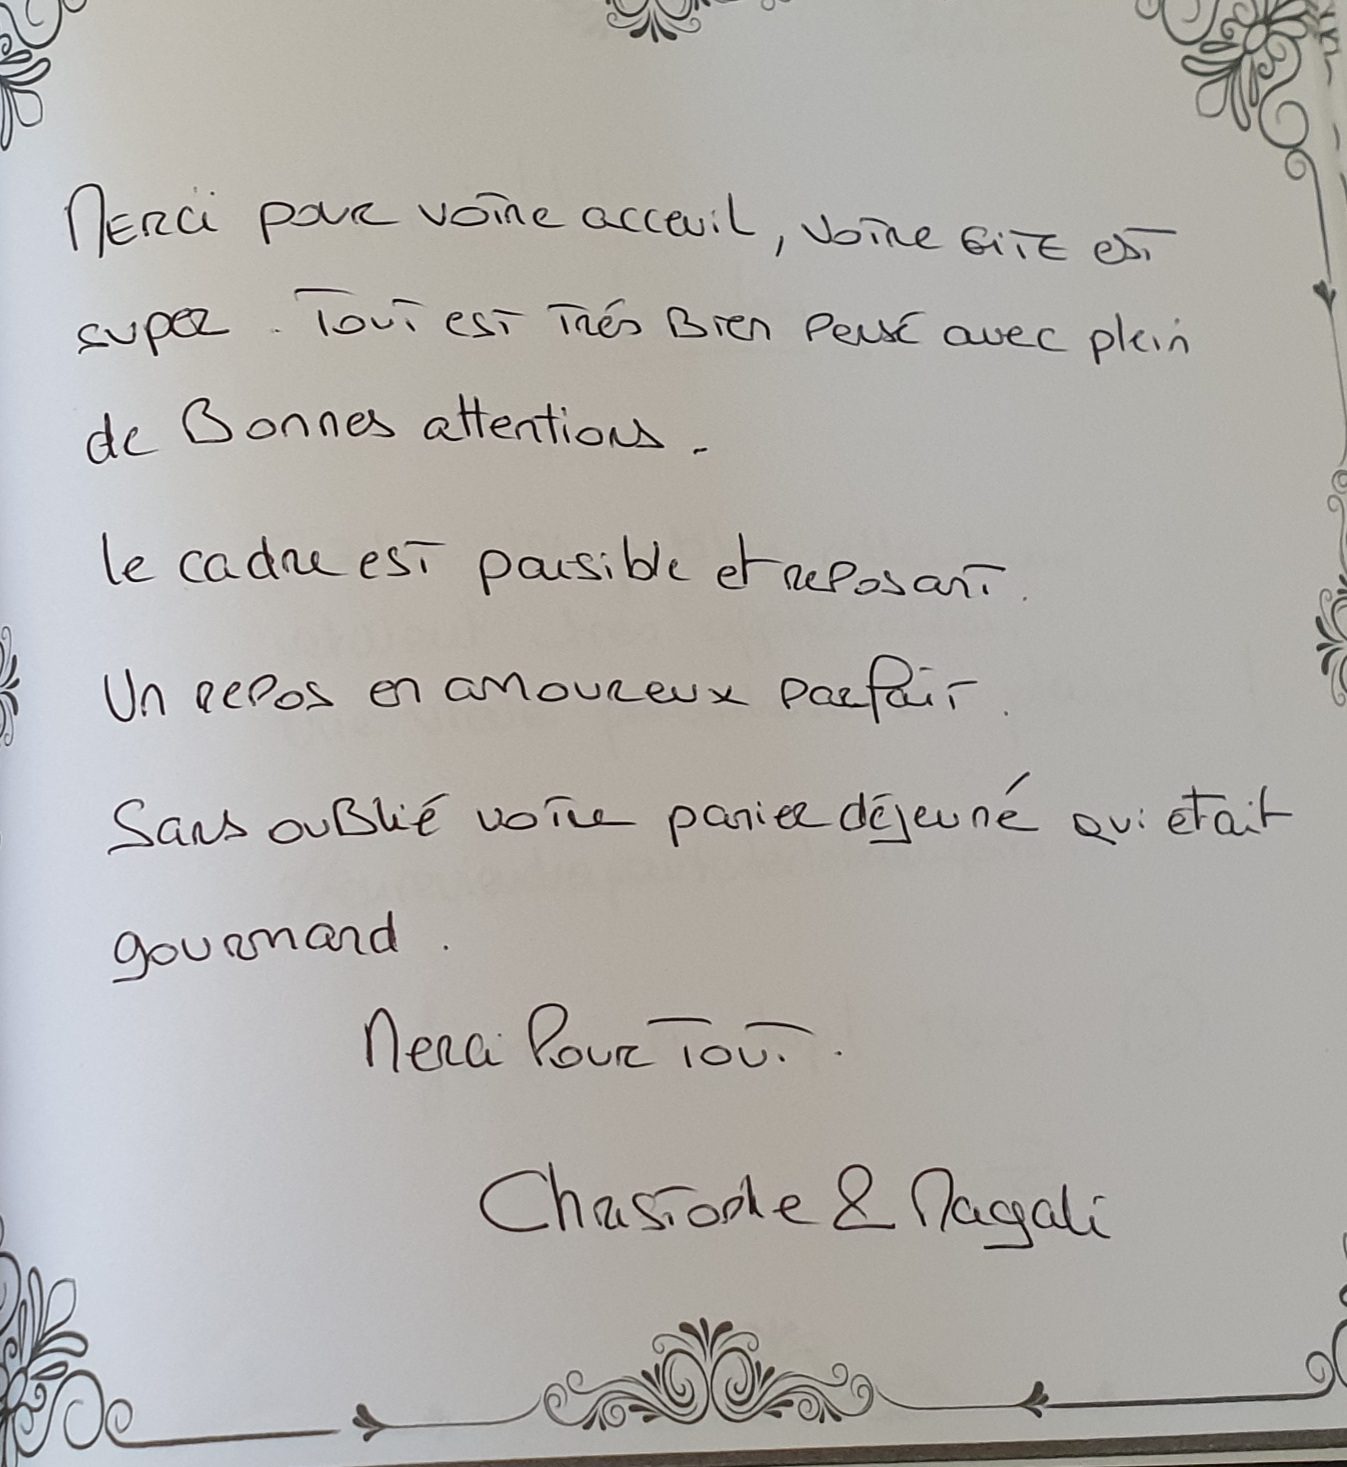 Merci pour votre acceuil, votre GITE est
super. Tout est trés Bien Pensé avec plein
de Bonnes attentions.
le cadre est paisible et reposant.
Un repos en amoureux parfait.
Sans ouBlié votre panier déjeuné qui était
gourmand.
Merci Pour Tout.
Christophe & Magali